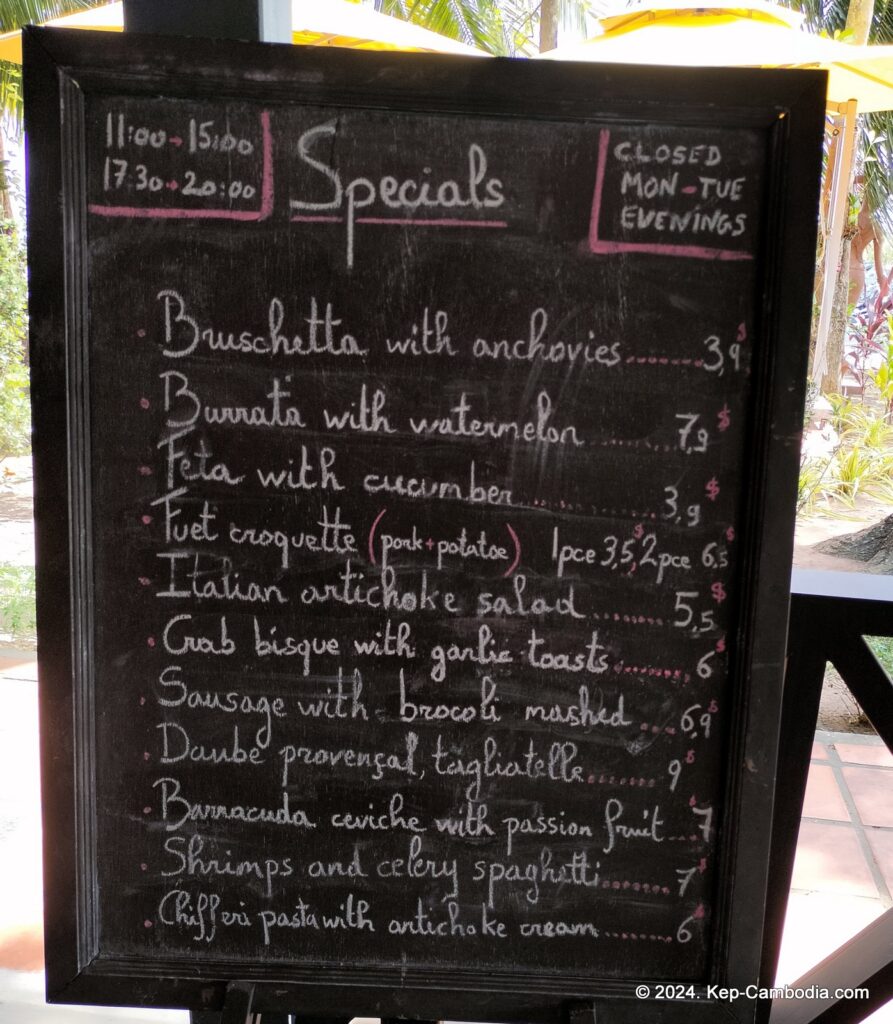 11:00 → 15:00
17.30 → 20:00
Specials
CLOSED
MON-TUE
EVENINGS
Bruschetta with anchovies........3,9$
Burrata with watermelon........7,9$
Feta with cucumber........3,9$
Fuet croquette (pork+potatoe) 1pce 3,5$ 2pce 6,5$
Italian artichoke salad........5,5$
Crab bisque with garlic toasts........6$
Sausage with brocoli mashed....6,9$
Daube provençal, tagliatelle........9$
Barracuda ceviche with passion fruit...7$
Shrimps and celery spaghetti........7$
Chifferi pasta with artichoke cream........6$
© 2024. Kep-Cambodia.com